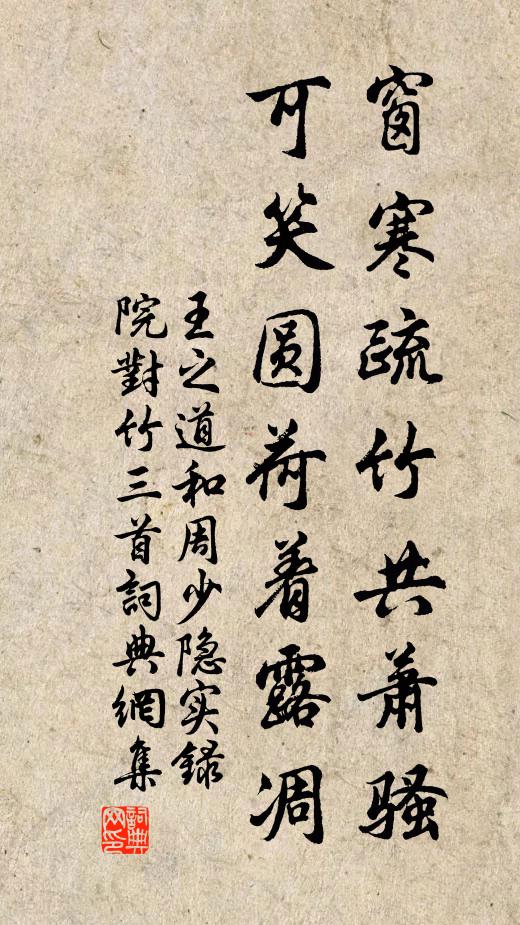 窗寒疏竹共萧骚
可笑圆荷着露凋
王之道和周少隐实录
院對竹三首詞典網集
詞典
网印